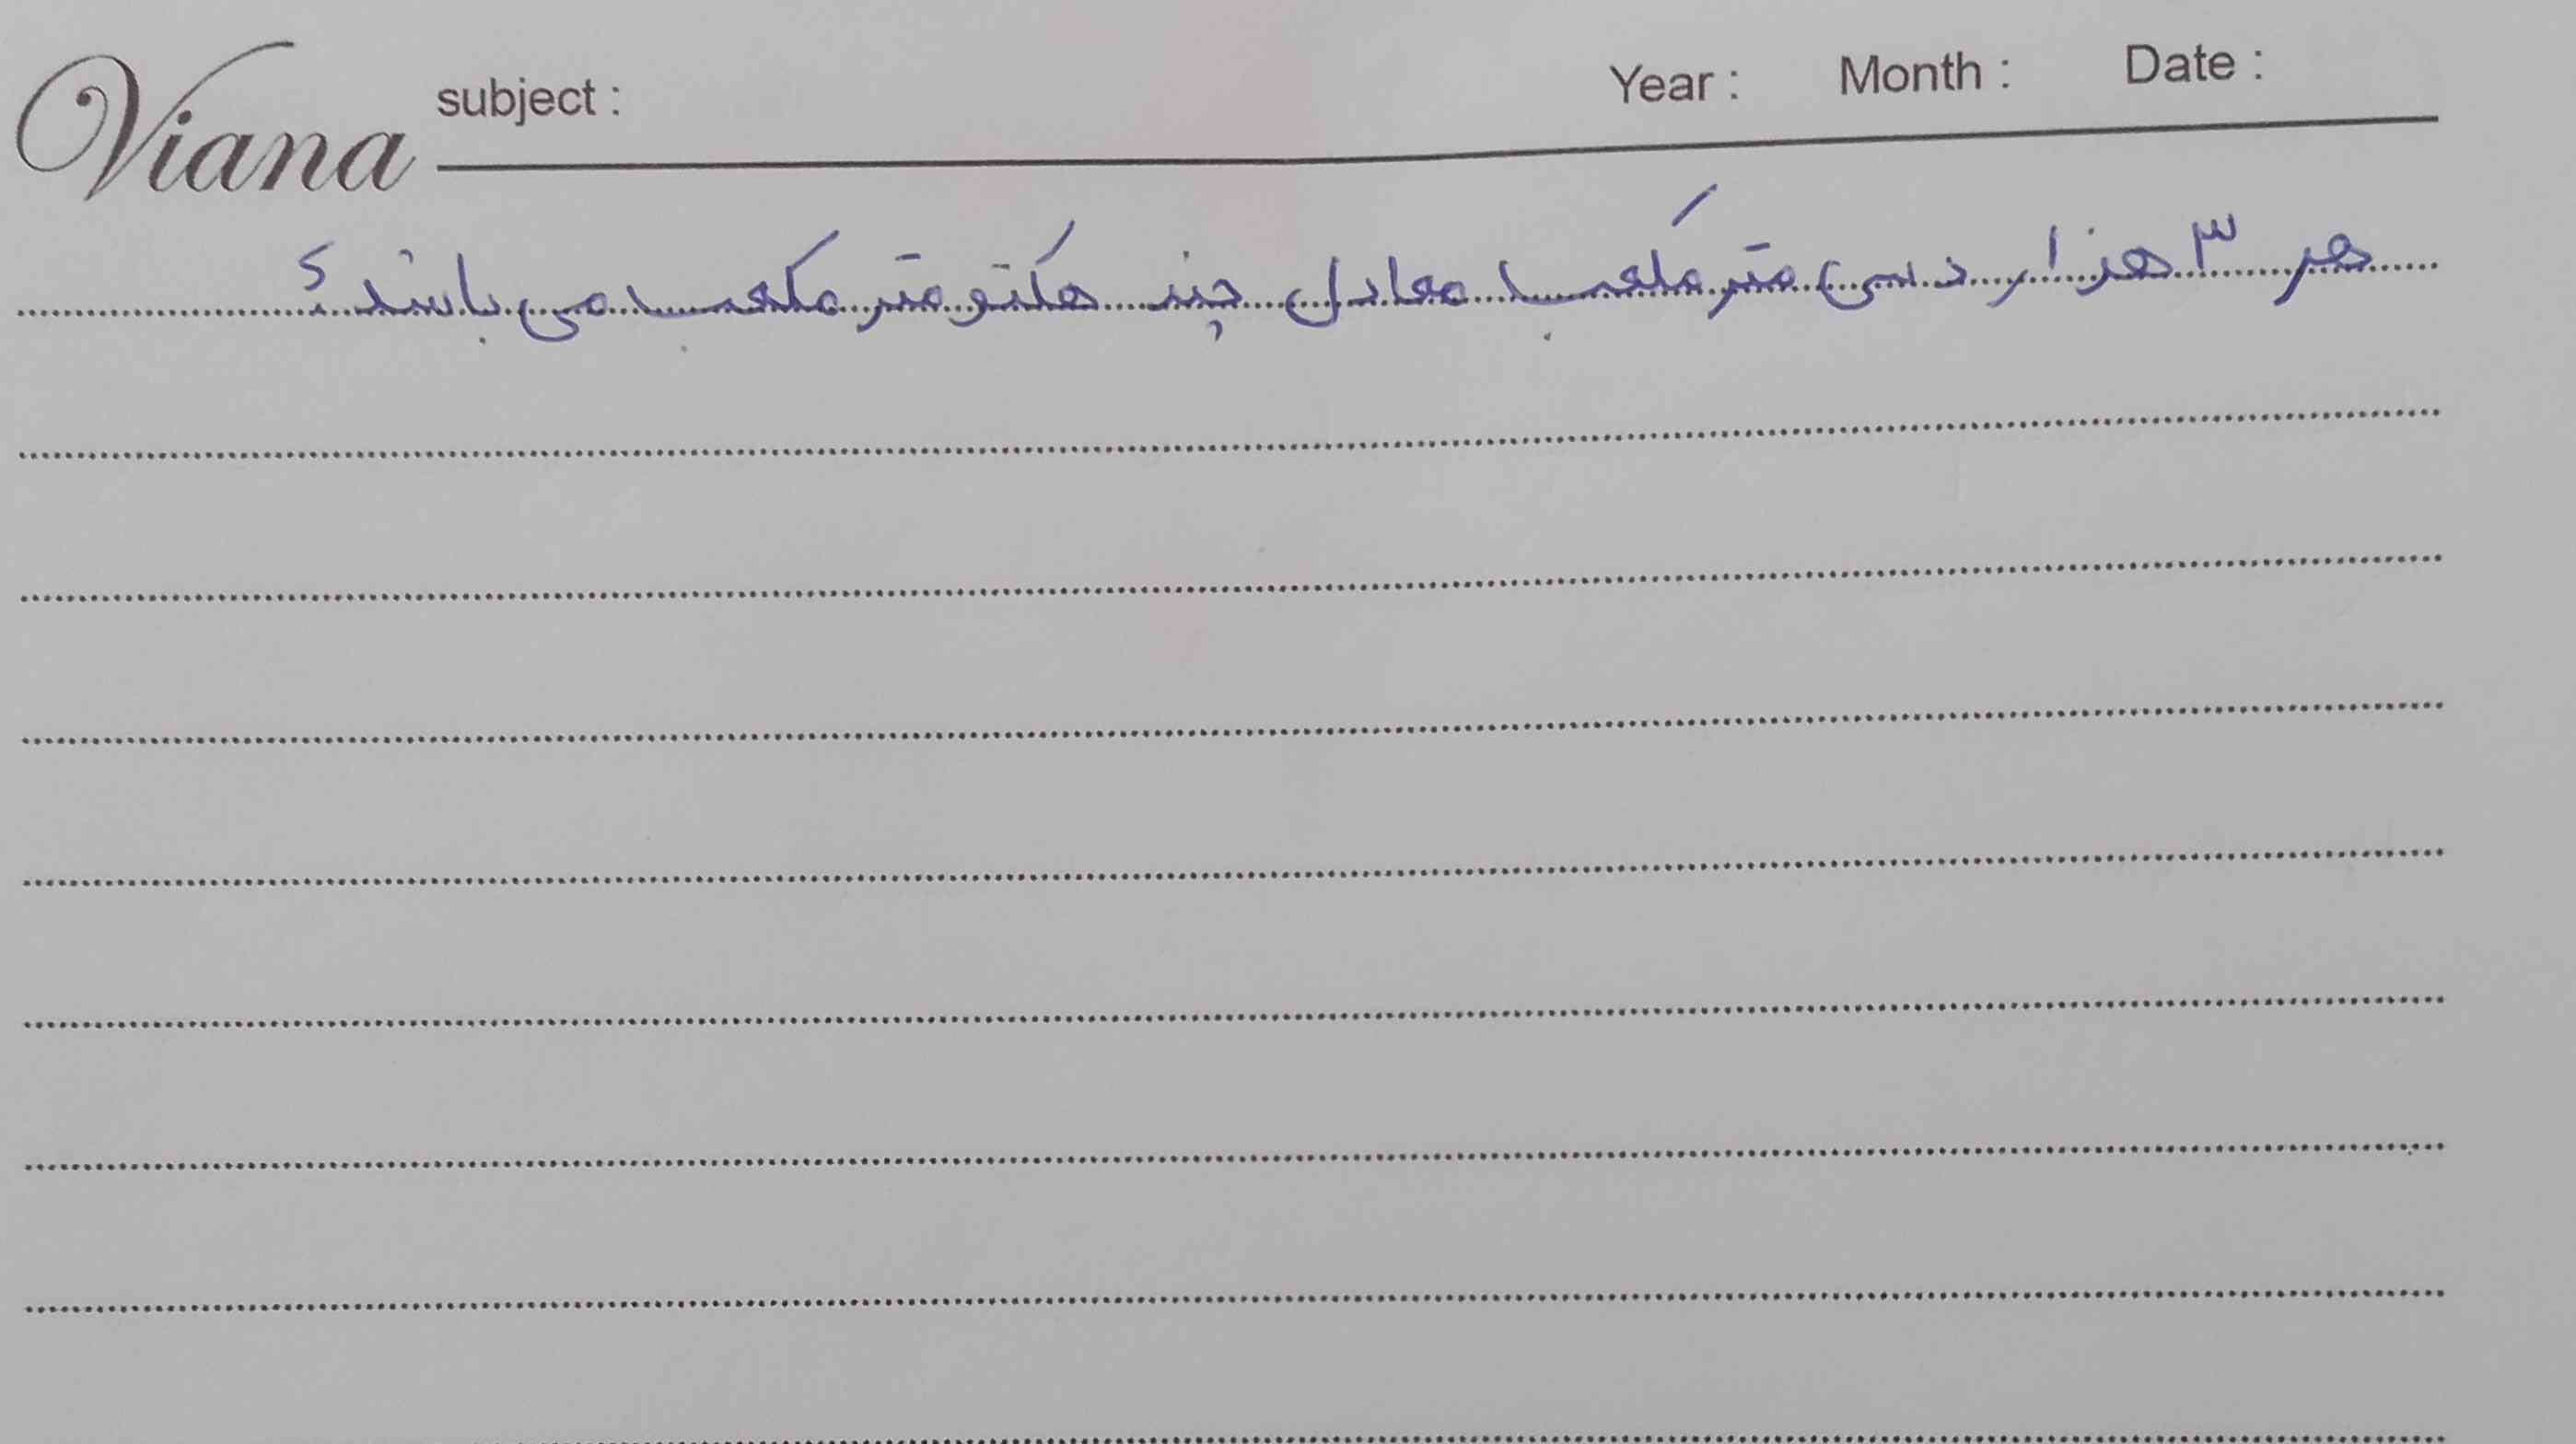 Viana subject : Year : Month : Date :
هر ۳ هزار دسی متر مکعب معادل چند هکتو متر مکعب می باشد؟